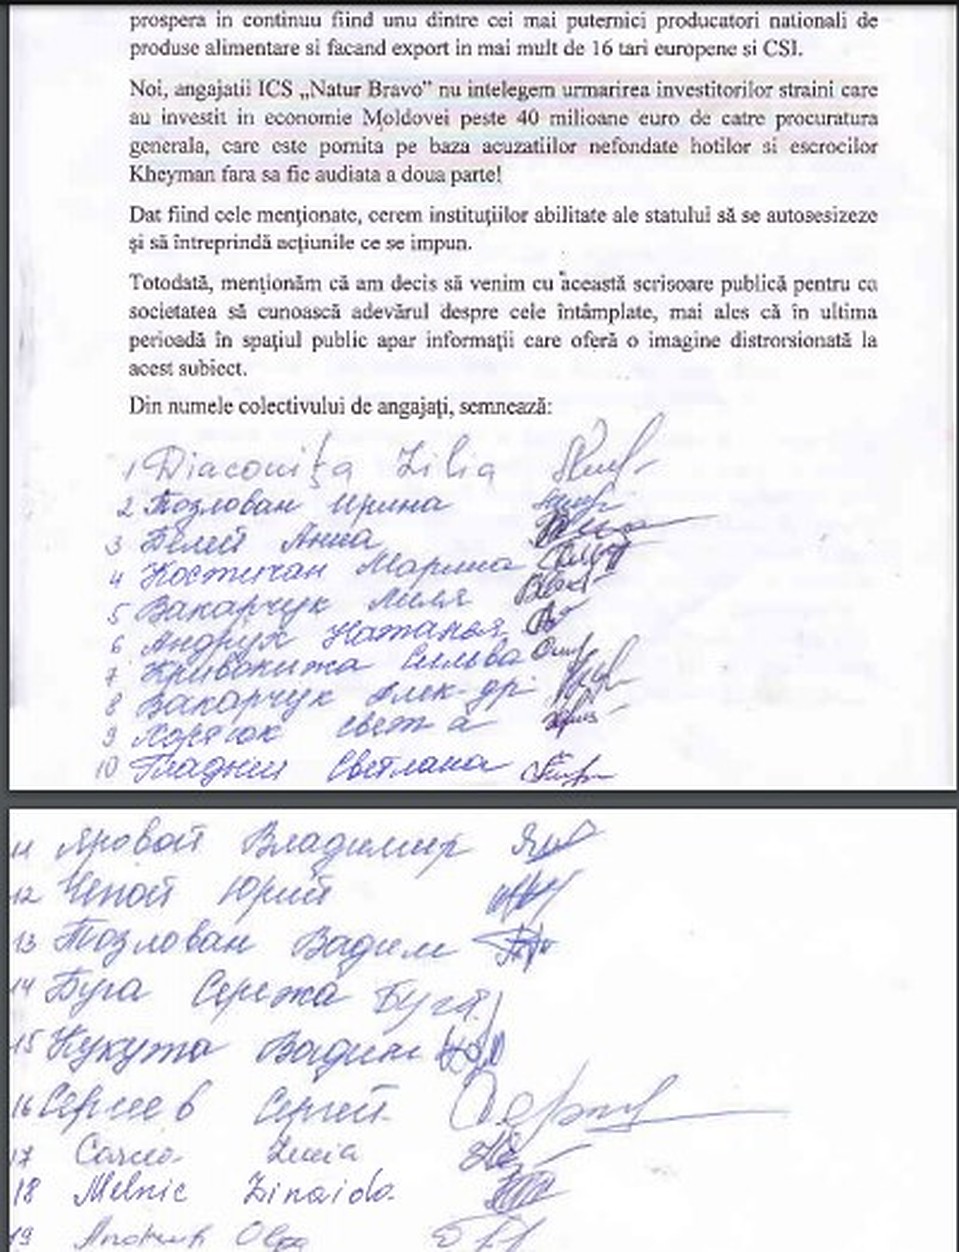 prospera in continuu fiind unu dintre cei mai puternici producatori nationali de
produse alimentare si facand export in mai mult de 16 tari europene si CSI.
Noi, angajatii ICS „Natur Bravo” nu intelegem urmarirea investitorilor straini care
au investit in economie Moldovei peste 40 milioane euro de catre procuratura
generala, care este pornita pe baza acuzatiilor nefondate hotilor si escrocilor
Kheyman fara sa fie audiata a doua parte!
Dat fiind cele menţionate, cerem instituţiilor abilitate ale statului să se autosesizeze
şi să întreprindă acţiunile ce se impun.
Totodată, menţionăm că am decis să venim cu această scrisoare publică pentru ca
societatea să cunoască adevărul despre cele întâmplate, mai ales că în ultima
perioadă în spaţiul public apar informaţii care oferă o imagine distrorsionată la
acest subiect.
Din numele colectivului de angajaţi, semnează:
1 Diaconiţa Lilia
2 Позлован Ирина
3 Белей Анна
4 Костичан Марина
5 Вакарчук Лиля
6 Андрух Наталья
7 Кривокижа Сильва
8 Вакарчук Алек-др
9 Светa
10 Гладкий Светлана
11 Яровой Владимир
12 Чепой Юрий
13 Позлован Вадим
14 Буга Сережа Буга
15 Кукута Вадим
16 Сергеев Сергей
17
18 Melnic Zinaida
19 Olga